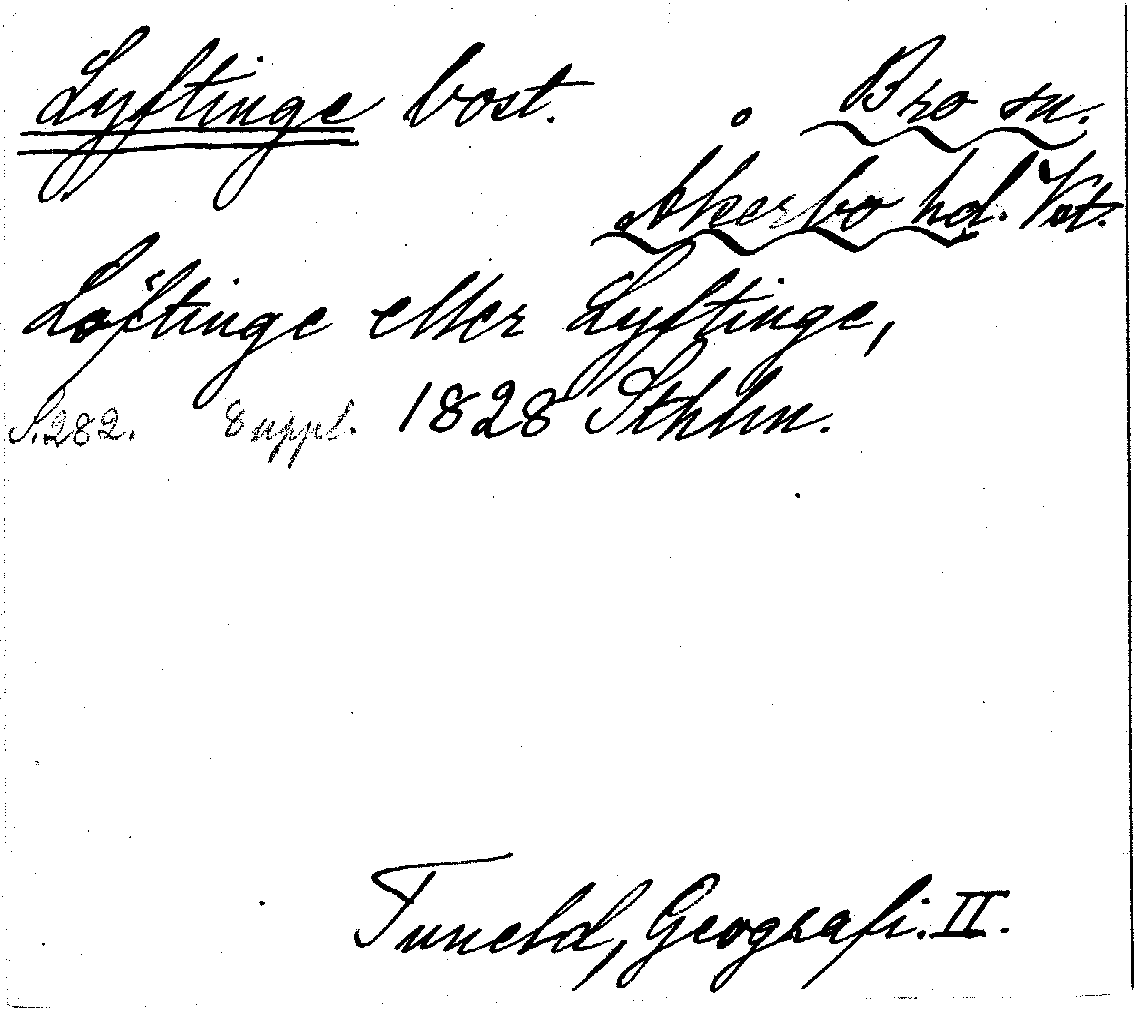 Lyftinge bost. Bro sn.
Åkerbo hd. Vst.
Löftinge eller Lyftinge,
S. 282. 8 uppl. 1828 Sthlm.
Tuneld, Geografi. II.